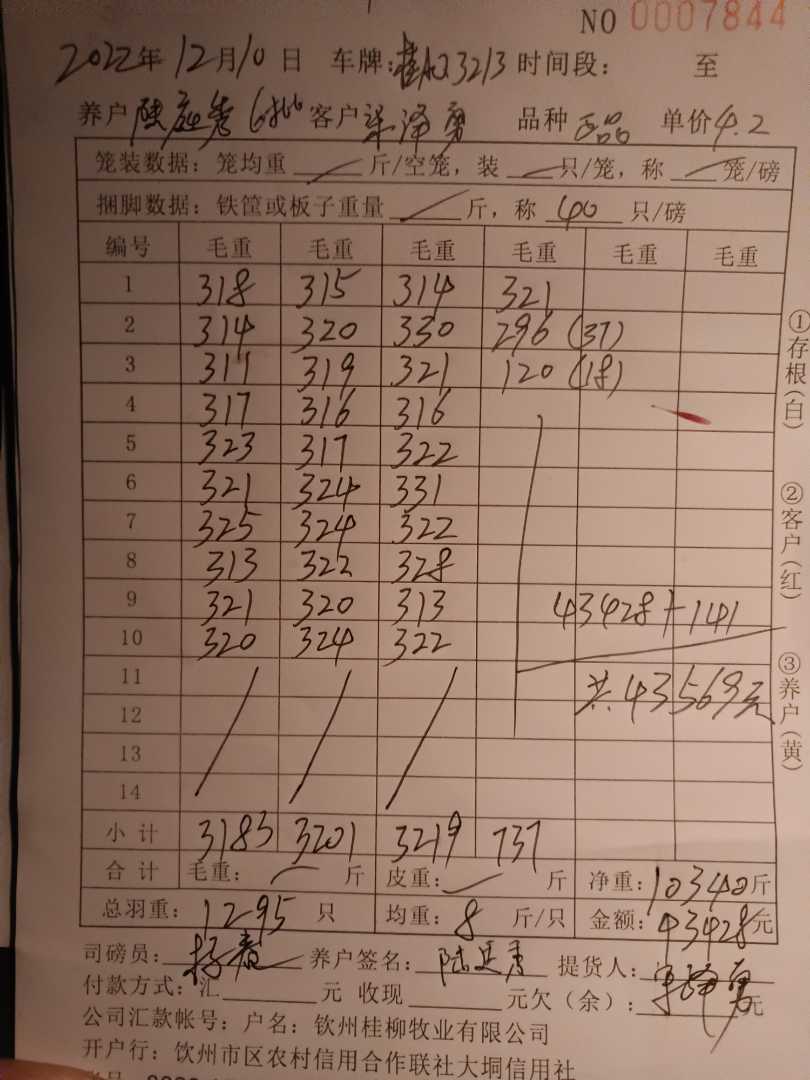 NO 0007844
2022年12月10日 车牌:桂A23213 时间段: 至
养户 陆延秀 6批 客户 梁泽勇 品种 正品 单价4.2
笼装数据：笼均重 斤/空笼，装 只/笼，称 笼/磅
捆脚数据：铁筐或板子重量 斤，称 40 只/磅
编号 毛重 毛重 毛重 毛重 毛重 毛重
1 318 315 314 321
2 314 320 330 296 (37)
3 311 319 321 120 (18)
4 317 316 316
5 323 317 322
6 321 324 331
7 325 324 322
8 313 322 328
9 321 320 313 43428+141
10 320 324 322
11 共43569元
12
13
14
小计 3183 3201 3219 737
合计 毛重: 斤 皮重: 斤 净重: 10340斤
总羽重: 1295 只 均重: 8 斤/只 金额: 43428元
司磅员: 养户签名: 陆延秀 提货人:
付款方式: 汇 元 收现 元欠（余）: 元
公司汇款帐号: 户名: 钦州桂柳牧业有限公司
开户行: 钦州市区农村信用合作联社大垌信用社
①存根(白)
②客户(红)
③养户(黄)